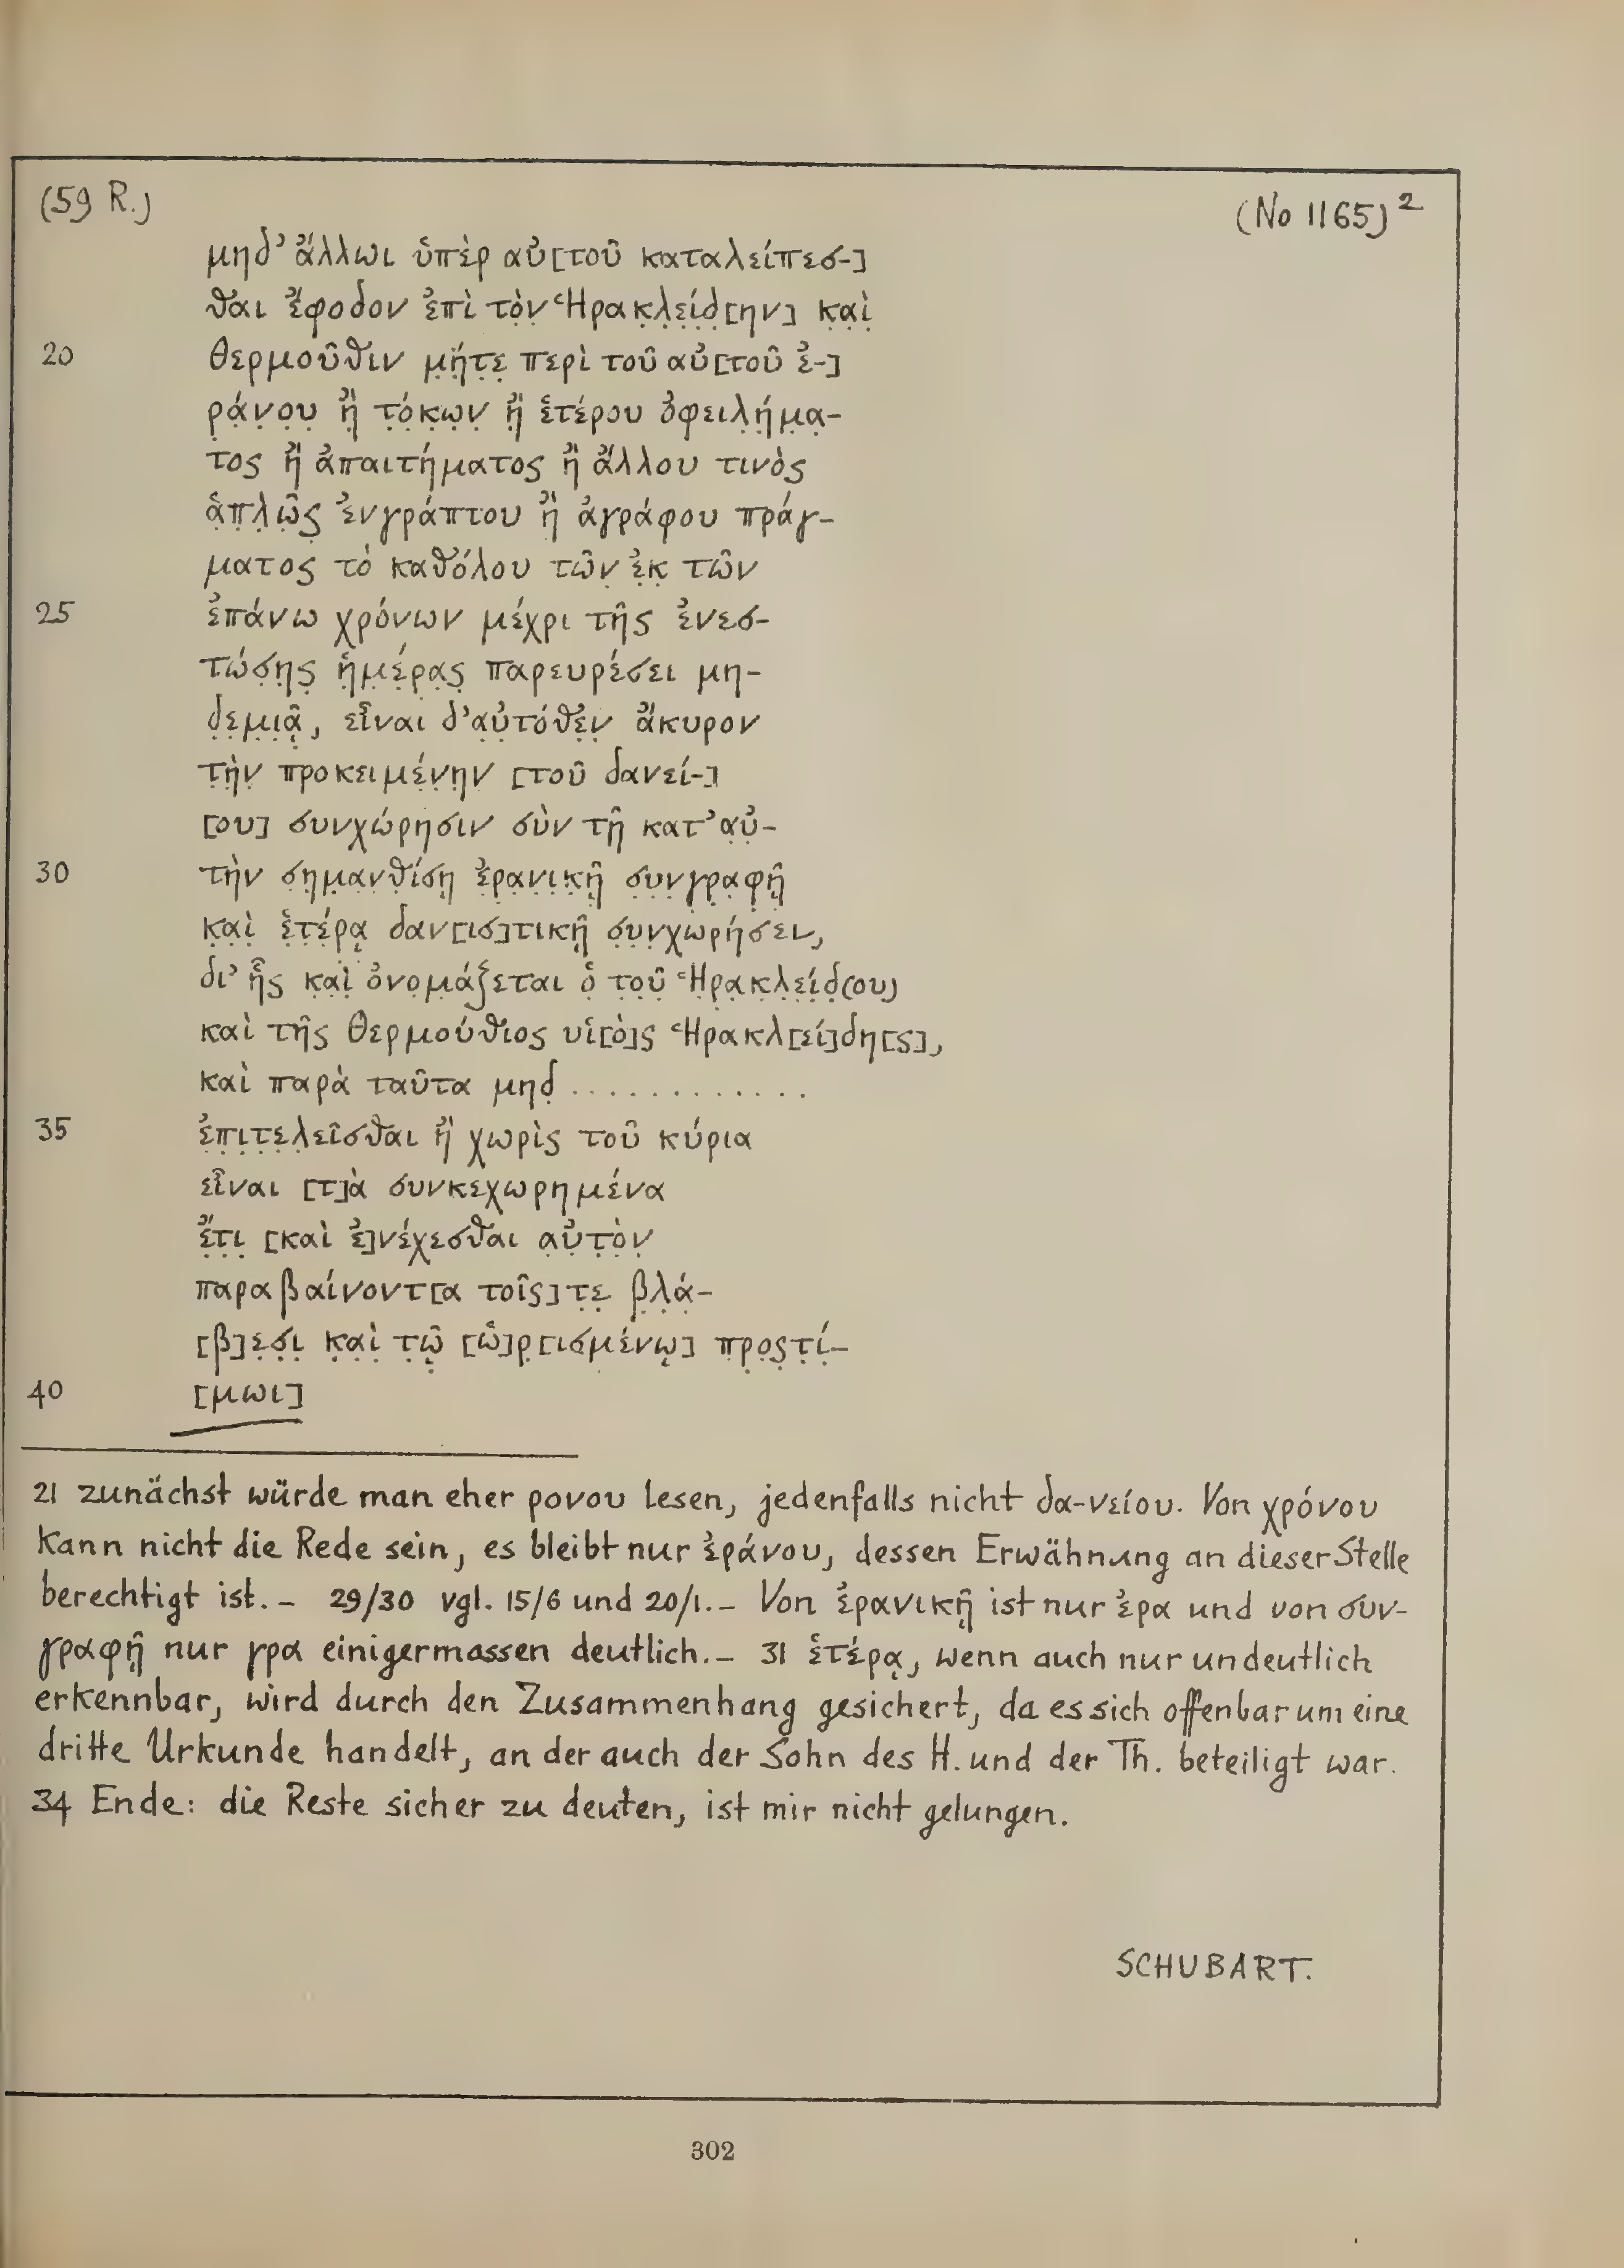 (59 R.)
(No 1165)²
μηδ’ ἄλλωι ὑπὲρ αὐ[τοῦ καταλείπεσ-]
θαι ἔφοδον ἐπὶ τὸν̣ Ἡρακ̣λ̣ε̣ί̣δ̣[ην] κ̣α̣ὶ̣
20 Θερμοῦθιν μ̣ή̣τ̣ε̣ περὶ τοῦ αὐ[τοῦ ἐ-]
ρ̣ά̣ν̣ο̣υ̣ ἢ̣ τ̣ό̣κ̣ω̣ν̣ ἢ̣ ἑτέρου ὀφειλ̣ή̣μ̣α̣-
τος ἢ ἀπαιτήματος ἢ ἄλλου τινὸς
ἁ̣π̣λ̣ῶ̣ς̣ ἐνγράπτου ἢ ἀγράφου πράγ-
ματος τὸ καθόλου τῶν̣ ἐ̣κ̣ τῶν
25 ἐπάνω χρόνων μέχρι τῆς ἐνεσ-
τώσ̣η̣ς̣ ἡ̣μ̣έ̣ρ̣α̣ς̣ παρευρέσει μη-
δ̣ε̣μ̣ι̣ᾷ̣, εἶναι δ’α̣ὐ̣τόθ̣ε̣ν̣ ἄκυρον
τ̣ὴ̣ν̣ προκειμ̣έ̣ν̣η̣ν [τοῦ δανεί-]
[ου] συνχώρησιν σὺν τῇ κατ’α̣ὐ̣-
30 τὴν σ̣η̣μ̣α̣ν̣θ̣ίσ̣ῃ ἐ̣ρ̣α̣ν̣ι̣κ̣ῇ̣ σ̣υ̣ν̣γ̣ρ̣α̣φ̣ῇ̣
κ̣α̣ὶ̣ ἑ̣τ̣έ̣ρ̣ᾳ δαν[ισ]τικῇ̣ σ̣υ̣ν̣χωρήσει,
δι’ ἧς κ̣α̣ὶ̣ ὀνο̣μ̣άζεται ὁ̣ τ̣ο̣ῦ̣ Ἡρ̣α̣κ̣λ̣ε̣ί̣δ̣(ου)
καὶ τῆς Θερμούθιος υἱ[ὸ]ς Ἡρακλ[εί]δη[ς],
καὶ παρὰ ταῦτα μηδ̣ . . . . . . . . . . . .
35 ἐ̣π̣ι̣τ̣ε̣λ̣εῖσθαι ἢ̣ χωρὶς τοῦ κύρια
εἶναι [τ]ὰ συνκεχωρημένα
ἔ̣τ̣ι̣ [καὶ ἐ]νέχεσθαι α̣ὐ̣τ̣ὸ̣ν̣
παραβαίνοντ[α τοῖς]τ̣ε̣ β̣λ̣ά̣-
[β]ε̣σ̣ι̣ κ̣α̣ὶ̣ τ̣ῷ̣ [ὡ]ρ̣[ισμένῳ] π̣ρ̣ο̣ς̣τ̣ί̣-
40 [μωι]
21 zunächst würde man eher ρονου lesen, jedenfalls nicht δα-νείου. Von χρόνου
kann nicht die Rede sein, es bleibt nur ἐράνου, dessen Erwähnung an dieser Stelle
berechtigt ist. – 29/30 vgl. 15/6 und 20/1. – Von ἐρανικῇ ist nur ἐρα und von συν-
γραφῇ nur γρα einigermassen deutlich. – 31 ἑτέρᾳ, wenn auch nur undeutlich
erkennbar, wird durch den Zusammenhang gesichert, da es sich offenbar um eine
dritte Urkunde handelt, an der auch der Sohn des H. und der Th. beteiligt war.
34 Ende: die Reste sicher zu deuten, ist mir nicht gelungen.
SCHUBART.
302